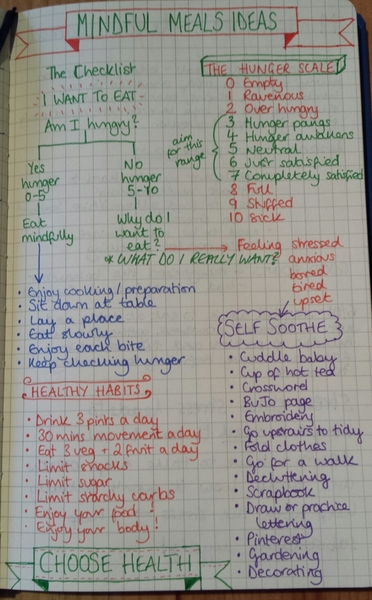 MINDFUL MEALS IDEAS
The Checklist
I WANT TO EAT
Am I hungry?
Yes
hunger
0-5
Eat
mindfully
No
hunger
5-10
Why do I
want to
eat?
* WHAT DO I REALLY WANT?
Feeling stressed
anxious
bored
tired
upset
THE HUNGER SCALE
0 Empty
1 Ravenous
2 Over hungry
3 Hunger pangs
4 Hunger awakens
5 Neutral
6 Just satisfied
7 Completely satisfied
8 Full
9 Stuffed
10 Sick
aim
for this
range
• Enjoy cooking/preparation
• Sit down at table
• Lay a place
• Eat slowly
• Enjoy each bite
• Keep checking hunger
HEALTHY HABITS
• Drink 3 pints a day
• 30 mins movement a day
• Eat 3 veg + 2 fruit a day
• Limit snacks
• Limit sugar
• Limit starchy carbs
• Enjoy your food!
• Enjoy your body!
SELF SOOTHE
• Cuddle baby
• Cup of hot tea
• Crossword
• BuJo page
• Embroidery
• Go upstairs to tidy
• Fold clothes
• Go for a walk
• Decluttering
• Scrapbook
• Draw or practise
lettering
• Pinterest
• Gardening
• Decorating
CHOOSE HEALTH